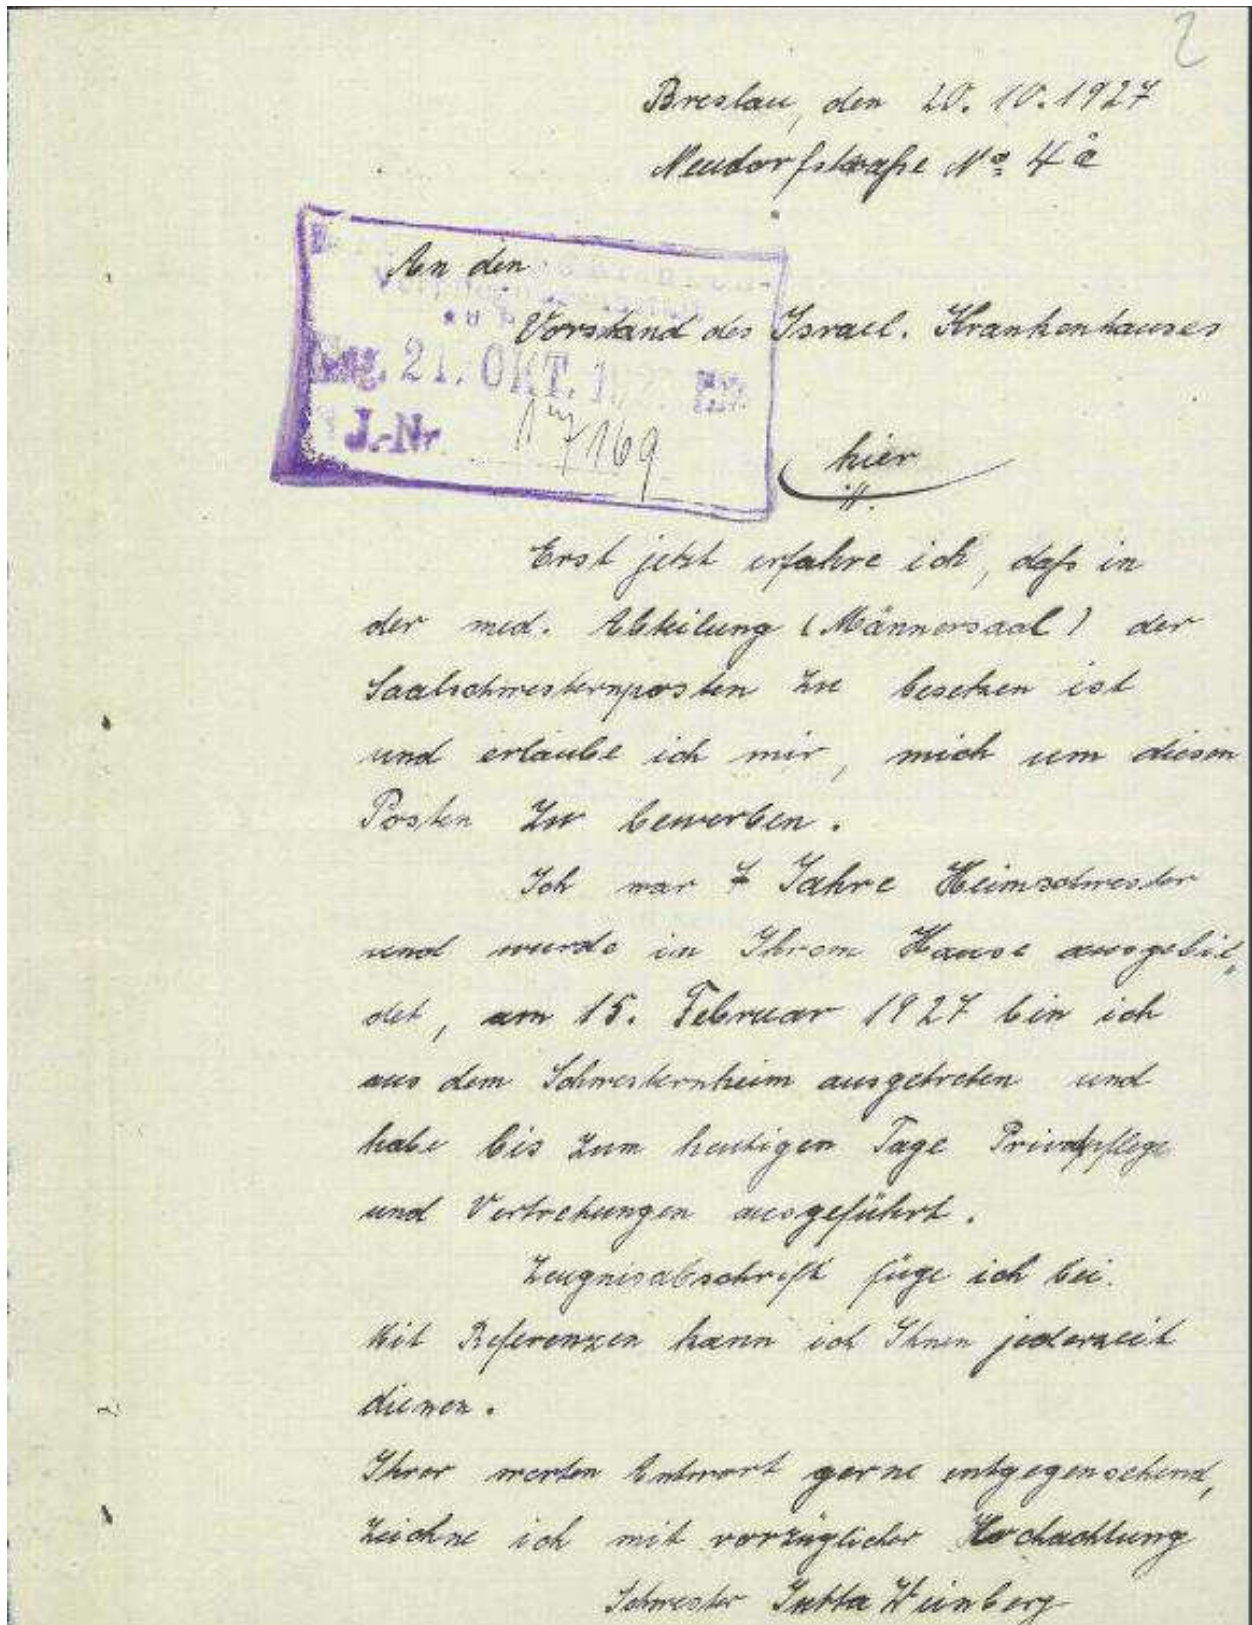 2
Breslau, den 20. 10. 1927
Neudorfstraße No 4a
An den
Vorstand des Israel. Krankenhauses
Eing. 21. OKT. 1
J.-Nr. 169
hier
Erst jetzt erfahre ich, daß in
der med. Abteilung (Männersaal) der
Saalschwesternposten zu besetzen ist
und erlaube ich mir, mich um diesen
Posten zu bewerben.
Ich war 7 Jahre Heimschwester
und wurde in Ihrem Hause ausgebil-
det, am 15. Februar 1927 bin ich
aus dem Schwesternheim ausgetreten und
habe bis zum heutigen Tage Privatpflege
und Vertretungen ausgeführt.
Zeugnisabschrift füge ich bei.
Mit Referenzen kann ich Ihnen jederzeit
dienen.
Ihrer werten Antwort gerne entgegensehend,
zeichne ich mit vorzüglicher Hochachtung
Schwester Jutta Weinberg